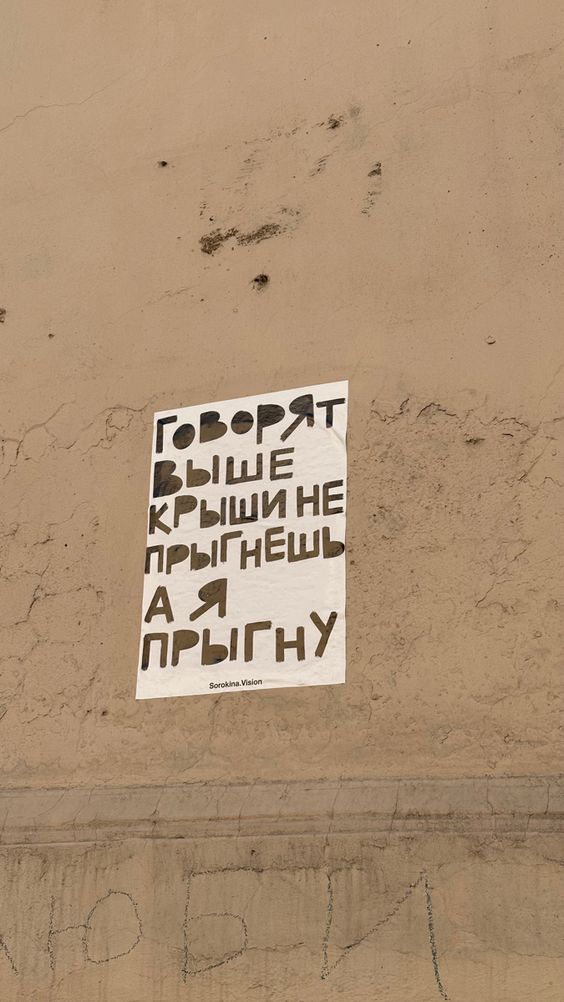 ГОВОРЯТ
ВЫШЕ
КРЫШИ НЕ
ПРЫГНЕШЬ
А Я
ПРЫГНУ
Sorokina.Vision
ЛЮБИ